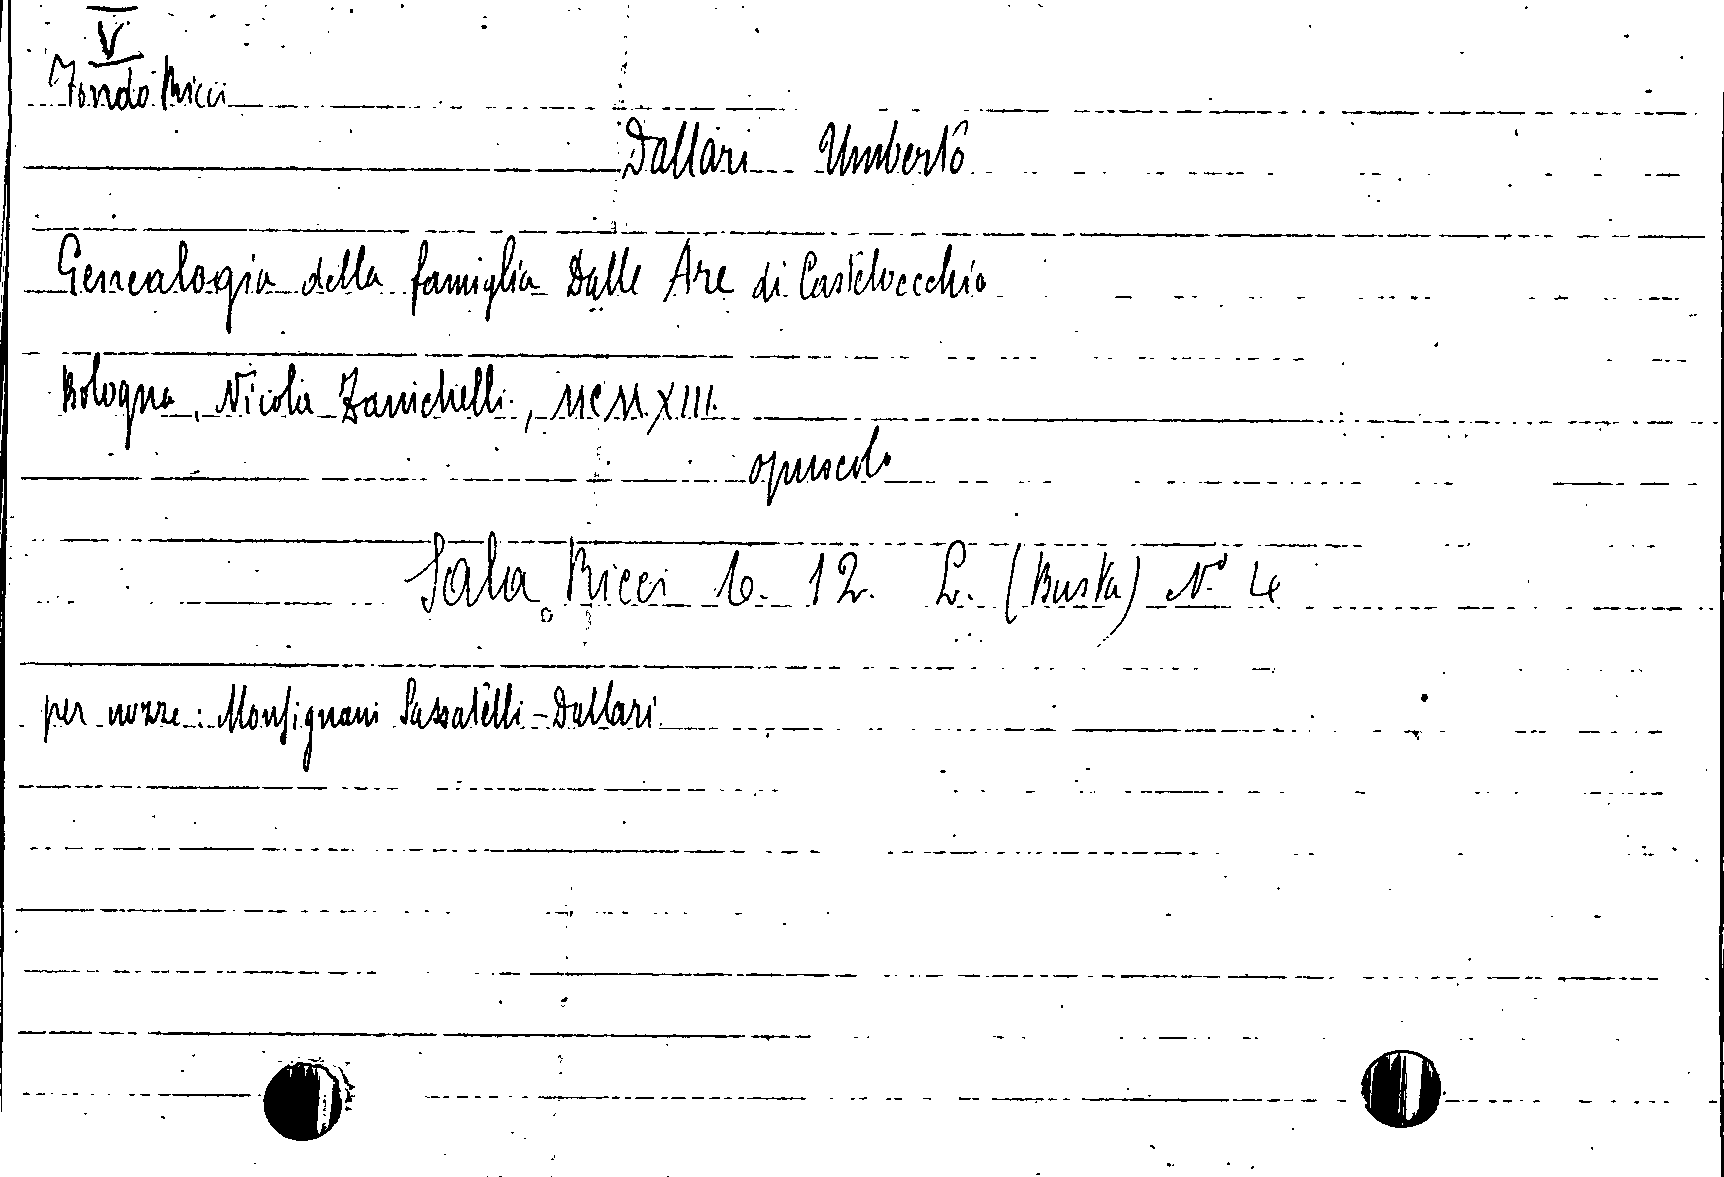 V
Fondo Ricci
Dallari Umberto
Genealogia della famiglia Dalle Are di Castelvecchio
Bologna, Nicola Zanichelli, MCMXIII.
opuscolo
Sala Ricci 6. 12. L. (Busta) N° 4
per nozze: Monsignani Sassatelli - Dallari